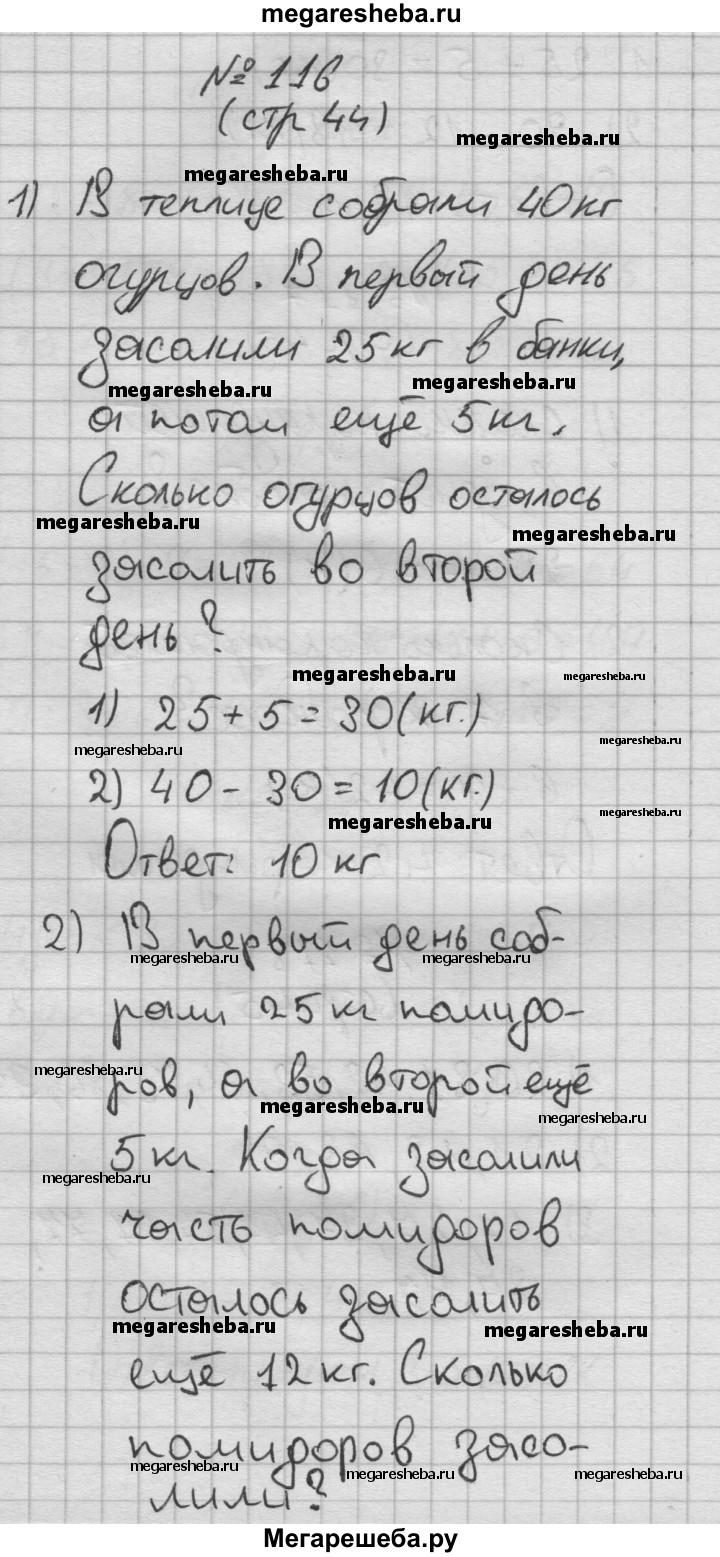 megaresheba.ru
№ 116
(стр 44)
megaresheba.ru
megaresheba.ru
1) В теплице собрали 40кг
огурцов. В первый день
засолили 25кг в банки,
megaresheba.ru
megaresheba.ru
а потом ещё 5кг.
Сколько огурцов осталось
megaresheba.ru
megaresheba.ru
засолить во второй
день?
megaresheba.ru
megaresheba.ru
1) 25+5=30(кг.)
megaresheba.ru
megaresheba.ru
2) 40-30=10(кг.)
megaresheba.ru
megaresheba.ru
Ответ: 10 кг
2) В первый день соб-
megaresheba.ru
megaresheba.ru
рали 25кг помидо-
megaresheba.ru
ров, а во второй ещё
megaresheba.ru
megaresheba.ru
5кг. Когда засолили
megaresheba.ru
часть помидоров
осталось засолить
megaresheba.ru
megaresheba.ru
ещё 12кг. Сколько
помидоров засо-
megaresheba.ru
megaresheba.ru
megaresheba.ru
лили?
Мегарешеба.ру